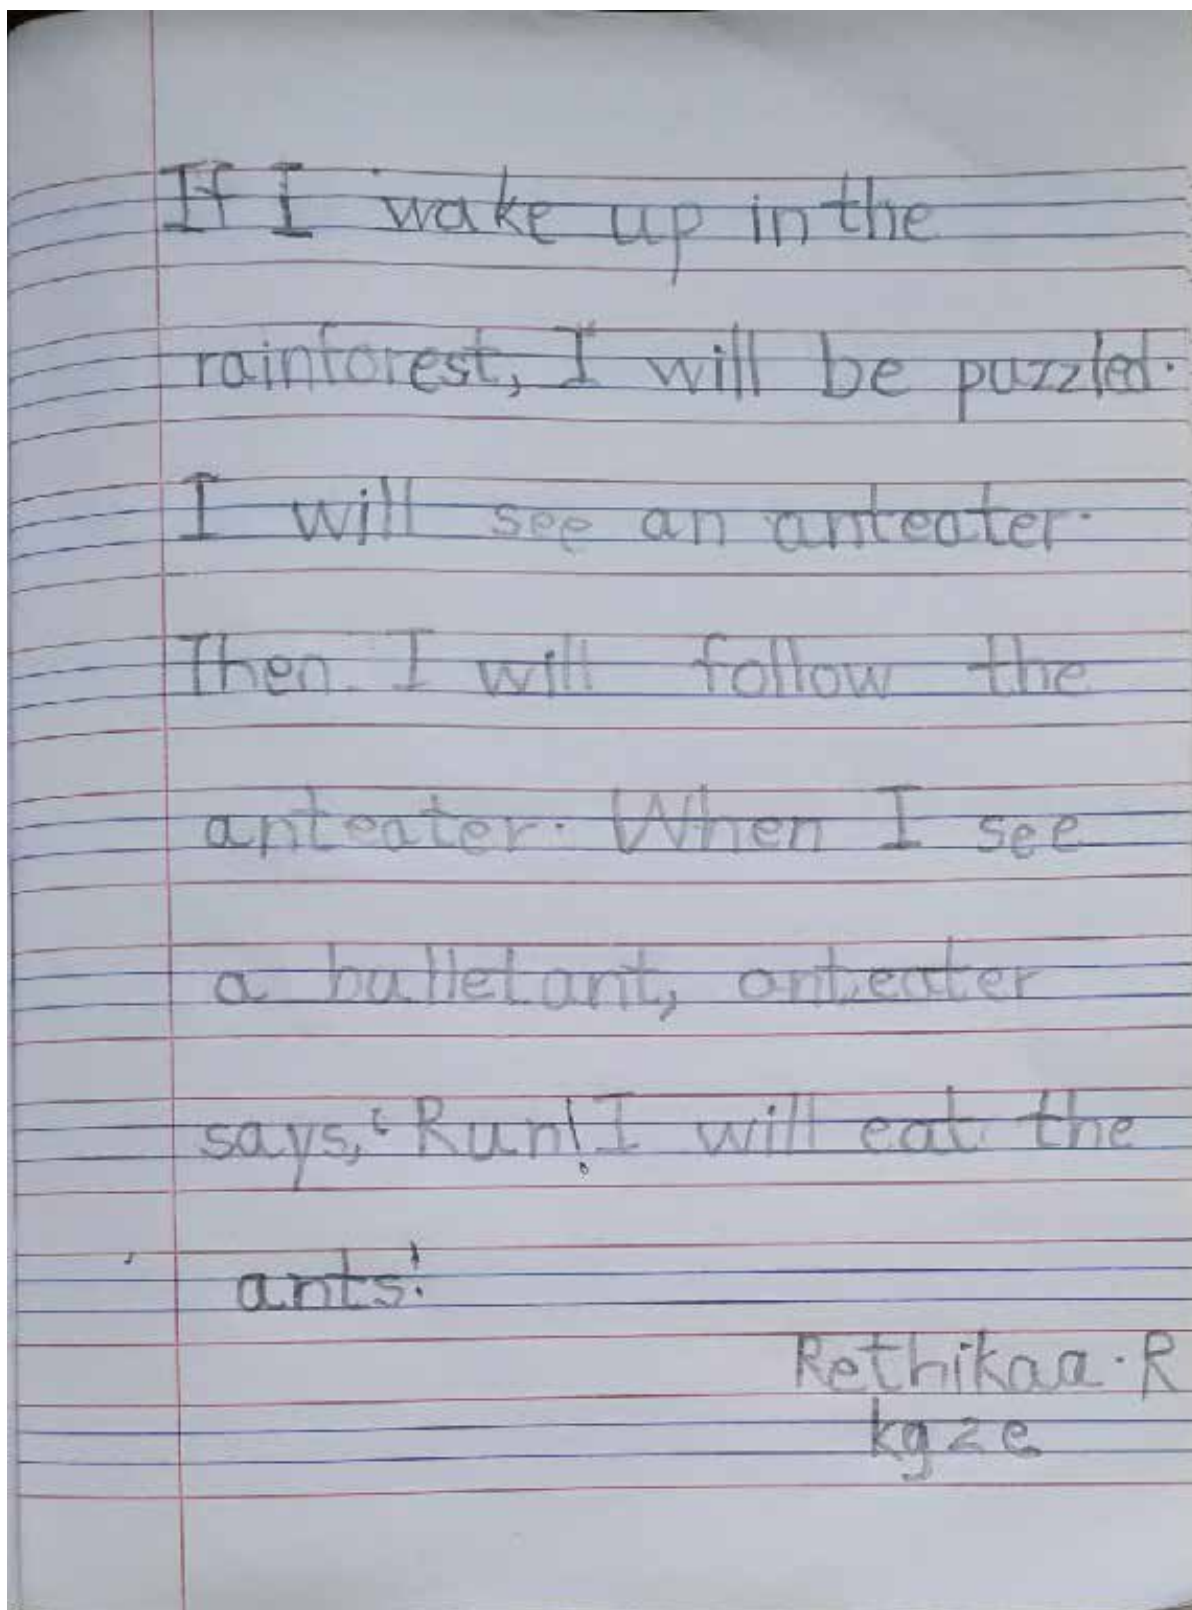 If I wake up in the
rainforest, I will be puzzled.
I will see an anteater.
Then I will follow the
anteater. When I see
a bullet ant, anteater
says, 'Run! I will eat the
ants.'
Rethikaa. R
kg2e